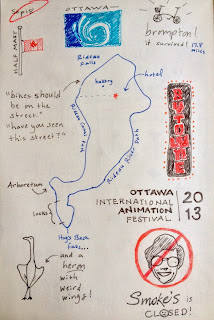 OTTAWA
brompton!
it survived! 17.8
miles
HALF MAST
Rideau
Falls
hotel
"bikes should
be on the
street."
"have you seen
this street?"
Rideau Canal Path
Rideau River Path
Arboretum
locks!
Hog's Back
Falls...
and a
heron
with
weird
wings!
OTTAWA
INTERNATIONAL
ANIMATION
FESTIVAL
20
13
Smoke's is
CLOSED!